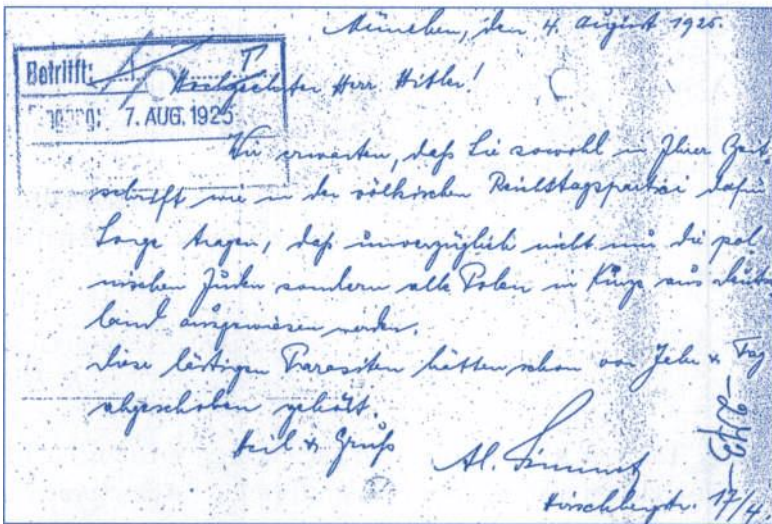 München, den 4. August 1925.
Betrifft:
Hochgeehrter Herr Hitler!
Eingang: 7. AUG. 1925
Wir erwarten, daß Sie sowohl in Ihrer Zeit
schrift wie in der völkischen Reichstagspartei dafür
Sorge tragen, daß unverzüglich nicht nur die pol
nischen Juden sondern alle Polen in Kürze aus Deutsch
land ausgewiesen werden.
Diese lästigen Parasiten hätten schon vor Jahr & Tag
abgeschoben gehört.
Heil & Gruß
Al.
-243-
17/4.